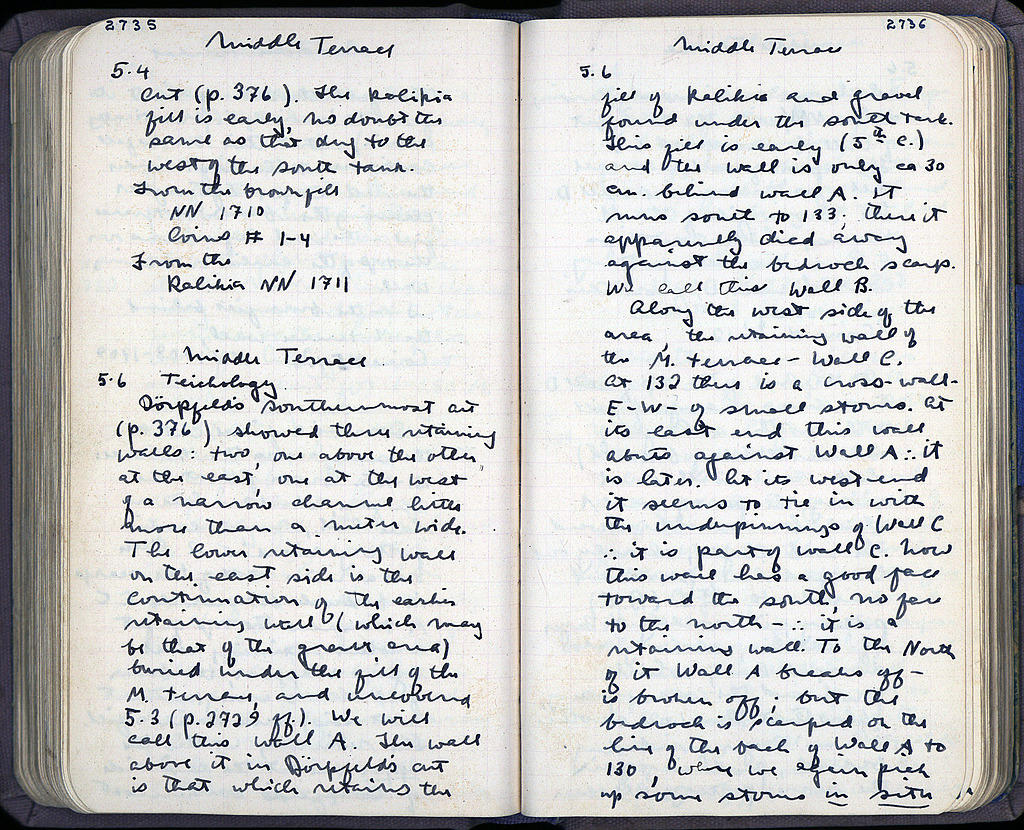 2735
Middle Terrace
5.4
cut (p. 376). The kalikia
fill is early, no doubt the
same as that dug to the
west of the south tank.
From the brown fill
NN 1710
Coins # 1-4
From the
Kalikia NN 1711
Middle Terrace
5.6 Teichology
Dörpfeld's southernmost cut
(p. 376) showed three retaining
walls: two, one above the other
at the east, one at the west
of a narrow channel little
more than a meter wide.
The lower retaining wall
on the east side is the
continuation of the earlier
retaining wall (which may
be that of the grave area)
buried under the fill of the
M. Terrace, and uncovered
5.3 (p. 2729 ff.). We will
call this wall A. The wall
above it in Dörpfeld's cut
is that which retains the
2736
Middle Terrace
5.6
fill of kalikia and gravel
found under the south tank.
This fill is early (5th c.)
and the wall is only ca 30
cm behind wall A. It
runs south to 133; there it
apparently died away
against the bedrock scarp.
We call this Wall B.
Along the west side of the
area, the retaining wall of
the M. Terrace - Wall C.
At 132 there is a cross-wall-
E-W- of small stones. At
its east end this wall
abuts against Wall A ∴ it
is later. At its west end
it seems to tie in with
the underpinnings of Wall C
∴ it is part of wall C. Now
this wall has a good face
toward the south, no face
to the north - ∴ it is a
retaining wall. To the North
of it Wall A breaks off -
is broken off; but the
bedrock is scarped on the
line of the back of Wall A to
130, where we again pick
up some stones in situ